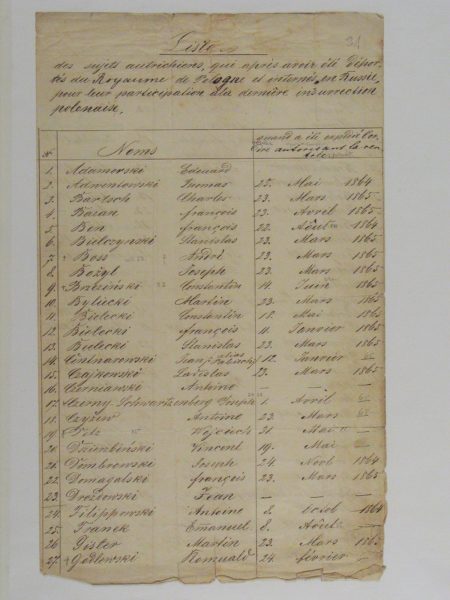 Liste
des sujets autrichiens, qui après avoir été dépor-
tés du Royaume de Pologne et internés en Russie,
pour leur participation à la dernière insurrection
polonaise.
N. Noms quand a été expédié l'or-
dre autorisant
1. Adamowski Edouard
2. Adwentowski Thomas 25. Mai 1864
3. Bartsch Charles 23. Mars 1865
4. Bazan françois 23. Avril 1865
5. Ben françois 22. Août 1864
6. Bielczynski Stanislas 23. Mars 1865
7. Boss André 23. Mars 1865
8. Bożyl Joseph 23. Mars 1865
9. Brzeziński Constantin 14. Juin 1865
10. Bylicki Martin 23. Mars 1865
11. Bielecki Constantin 18. Mai 1865
12. Bielecki françois 11. Janvier 1865
13. Bielecki Stanislas 23. Mars 1865
14. 12. Janvier —
15. Czajkowski Ladislas 23. Mars 1865
16. Czerniawski Antoine — — —
17. Czerny Schwarzenberg Joseph 1. Avril 65
18. Czyżew Antoine 23. Mars 65
19. Wojciech 31. Mai
20. Dzierzbiński Vincent 19. Mai —
21. Dombrowski Joseph 24. Novb 1864
22. Domagalski françois 23. Mars 1865
23. Drozdowski Jean — — —
24. Filippowski Antoine 8. Octob 1864
25. Franck Emanuel 8. Août —
26. Gister Martin 23. Mars 1865
27. Godlewski Romuald 24. février —